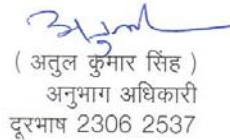 ( अतुल कुमार सिंह )
अनुभाग अधिकारी
दूरभाष 2306 2537